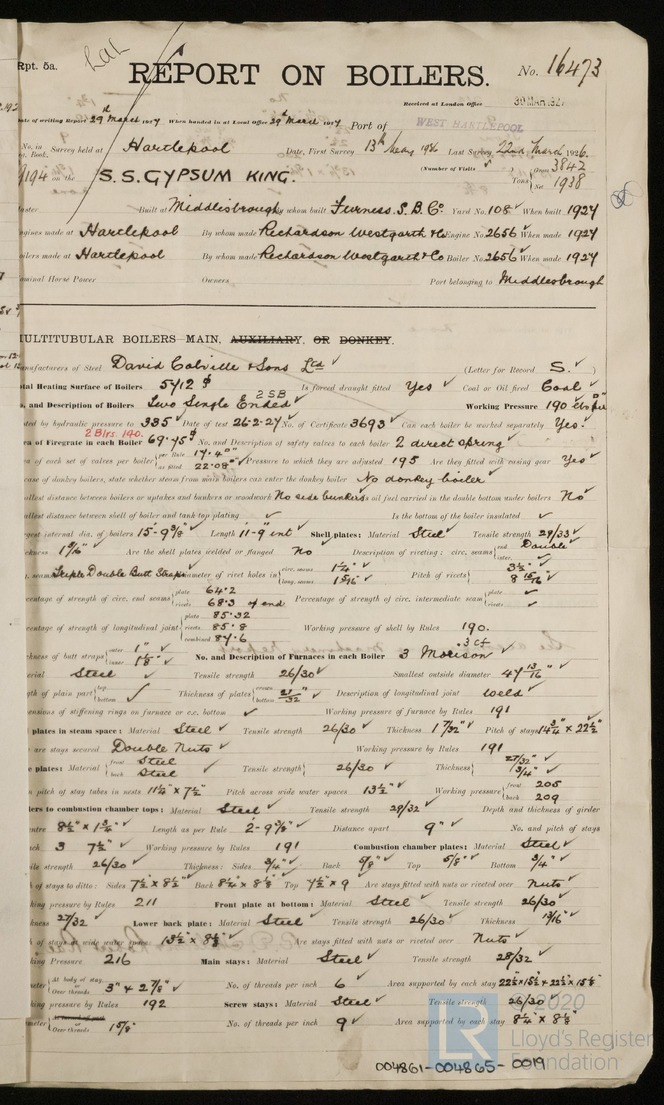 Rpt. 5a.
REPORT ON BOILERS.
No. 16473
Received at London Office 30 MAR 1927
ate of writing Report 29th March 1927 When handed in at Local Office 29th March 1927 Port of WEST HARTLEPOOL
No. in Survey held at Hartlepool Date, First Survey 13th Last Survey, 22nd March 1926.
Book. (Number of Visits ) Gross 3842
9194 on the S.S. GYPSUM KING. Tons Net 1938
aster Built at Middlesbrough By whom built Furness. S. B. Co. Yard No. 108 When built 1927
gines made at Hartlepool By whom made Richardson Westgarth & Co Engine No. 2656 When made 1927
ilers made at Hartlepool By whom made Richardson Westgarth & Co Boiler No. 2656 When made 1927
ominal Horse Power Owners Port belonging to Middlesbrough
ULTITUBULAR BOILERS—MAIN, AUXILIARY, OR DONKEY.
anufacturers of Steel David Colville & Sons Ltd (Letter for Record S. )
tal Heating Surface of Boilers 5412 Is forced draught fitted Yes Coal or Oil fired Coal
2 SB
. and Description of Boilers Two Single Ended Working Pressure 190
ted by hydraulic pressure to 335 Date of test 26-2-27 No. of Certificate 3693 Can each boiler be worked separately Yes.
2 Blrs. 140.
ea of Firegrate in each Boiler 69.75 No. and Description of safety valves to each boiler 2 direct spring
ea of each set of valves per boiler per Rule 17.4 as fitted 22.08 Pressure to which they are adjusted 195 Are they fitted with easing gear Yes
case of donkey boilers, state whether steam from main boilers can enter the donkey boiler No donkey boiler
allest distance between boilers or uptakes and bunkers or woodwork No side bunkers Is oil fuel carried in the double bottom under boilers No
allest distance between shell of boiler and tank top plating Is the bottom of the boiler insulated
gest internal dia. of boilers 15'-9 3/8" Length 11-9" int Shell plates: Material Steel Tensile strength 29/33
ckness 1 9/16" Are the shell plates welded or flanged No Description of riveting: circ. seams end Double inter.
. seams Triple Double Butt Straps Diameter of rivet holes in circ. seams 1 1/4" long. seams 1 5/16" Pitch of rivets 3 1/2" 8 15/16"
centage of strength of circ. end seams plate 64.2 rivets 68.3 of end Percentage of strength of circ. intermediate seam plate rivets
centage of strength of longitudinal joint plate 85.32 rivets 85.8 combined 87.6 Working pressure of shell by Rules 190.
ckness of butt straps outer 1" inner 1 1/8" No. and Description of Furnaces in each Boiler 3 Morison
erial Steel Tensile strength 26/30 Smallest outside diameter 47 13/16"
gth of plain part top bottom Thickness of plates crown bottom 21/32" Description of longitudinal joint weld
ensions of stiffening rings on furnace or c.c. bottom Working pressure of furnace by Rules 191
plates in steam space: Material Steel Tensile strength 26/30 Thickness 1 7/32" Pitch of stays 14 3/4" x 22 1/2"
are stays secured Double Nuts Working pressure by Rules 191
e plates: Material front Steel back Steel Tensile strength 26/30 Thickness 27/32" 3/4"
n pitch of stay tubes in nests 11 1/4" x 7 1/2" Pitch across wide water spaces 13 1/2" Working pressure front 205 back 209
ders to combustion chamber tops: Material Steel Tensile strength 28/32 Depth and thickness of girder
entre 8 1/2" x 1 3/4" Length as per Rule 2-9 3/8" Distance apart 9" No. and pitch of stays
ach 3 7 1/2" Working pressure by Rules 191 Combustion chamber plates: Material Steel
ile strength 26/30 Thickness: Sides 3/4" Back 5/8" Top 5/8" Bottom 3/4"
h of stays to ditto: Sides 7 1/2 x 8 1/2" Back 8 1/4" x 8 1/8" Top 7 1/2 x 9 Are stays fitted with nuts or riveted over Nuts
king pressure by Rules 211 Front plate at bottom: Material Steel Tensile strength 26/30
kness 27/32 Lower back plate: Material Steel Tensile strength 26/30 Thickness 13/16"
h of stays at wide water space 13 1/2" x 8 1/8" Are stays fitted with nuts or riveted over Nuts
king Pressure 216 Main stays: Material Steel Tensile strength 28/32
eter At body of stay, or Over threads 3" & 2 7/8" No. of threads per inch 6 Area supported by each stay
king pressure by Rules 192 Screw stays: Material Steel Tensile strength 26/30
meter Over threads 1 5/8" No. of threads per inch 9 Area supported by each stay 8 1/4" x 8 1/8"
© 2020
LR
Lloyd's Register
Foundation
004861-004865-0019